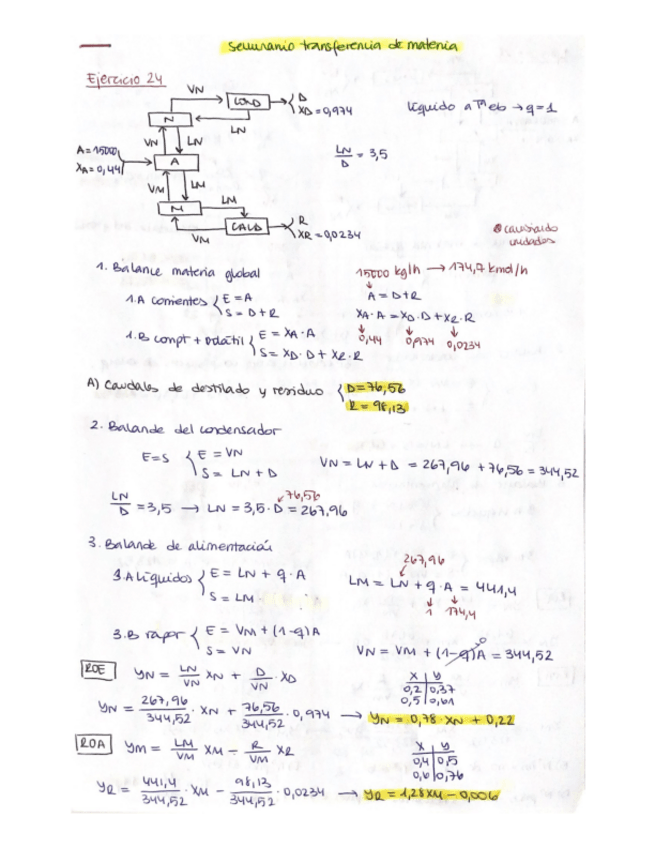 Seminario transferencia de materia
Ejercicio 24
VN
COND
D
XD = 0,974
líquido a Tª eb → q = 1
N
LN
VN
LN
LN/D = 3,5
A = 15000
XA = 0,44
A
VM
LM
M
LM
CALD
R
XR = 0,0234
VM
cambiando
unidades
1. Balance materia global
15000 kg/h → 174,7 kmol/h
1.A corrientes { E = A
S = D + R
A = D + R
XA · A = XD · D + XR · R
0,44
0,974
0,0234
1.B compt + volátil { E = XA · A
S = XD · D + XR · R
A) Caudales de destilado y residuo { D = 76,56
R = 98,13
2. Balande del condensador
E = S { E = VN
S = LN + D
VN = LN + D = 267,96 + 76,56 = 344,52
LN/D = 3,5 → LN = 3,5 · D = 267,96
76,56
3. Balande de alimentación
3.A líquidos { E = LN + q · A
S = LM
267,96
LM = LN + q · A = 441,4
1
174,4
3.B vapor { E = VM + (1-q)A
S = VN
VN = VM + (1-q)A = 344,52
0
ROE
YN = LN/VN XN + D/VN · XD
X | Y
0,2 | 0,37
0,5 | 0,61
YN = 267,96/344,52 · XN + 76,56/344,52 · 0,974 → YN = 0,78 · XN + 0,22
ROA
YM = LM/VM XM - R/VM XR
X | Y
0,4 | 0,5
0,6 | 0,76
YR = 441,4/344,52 · XM - 98,13/344,52 · 0,0234 → YR = 1,28XM - 0,006